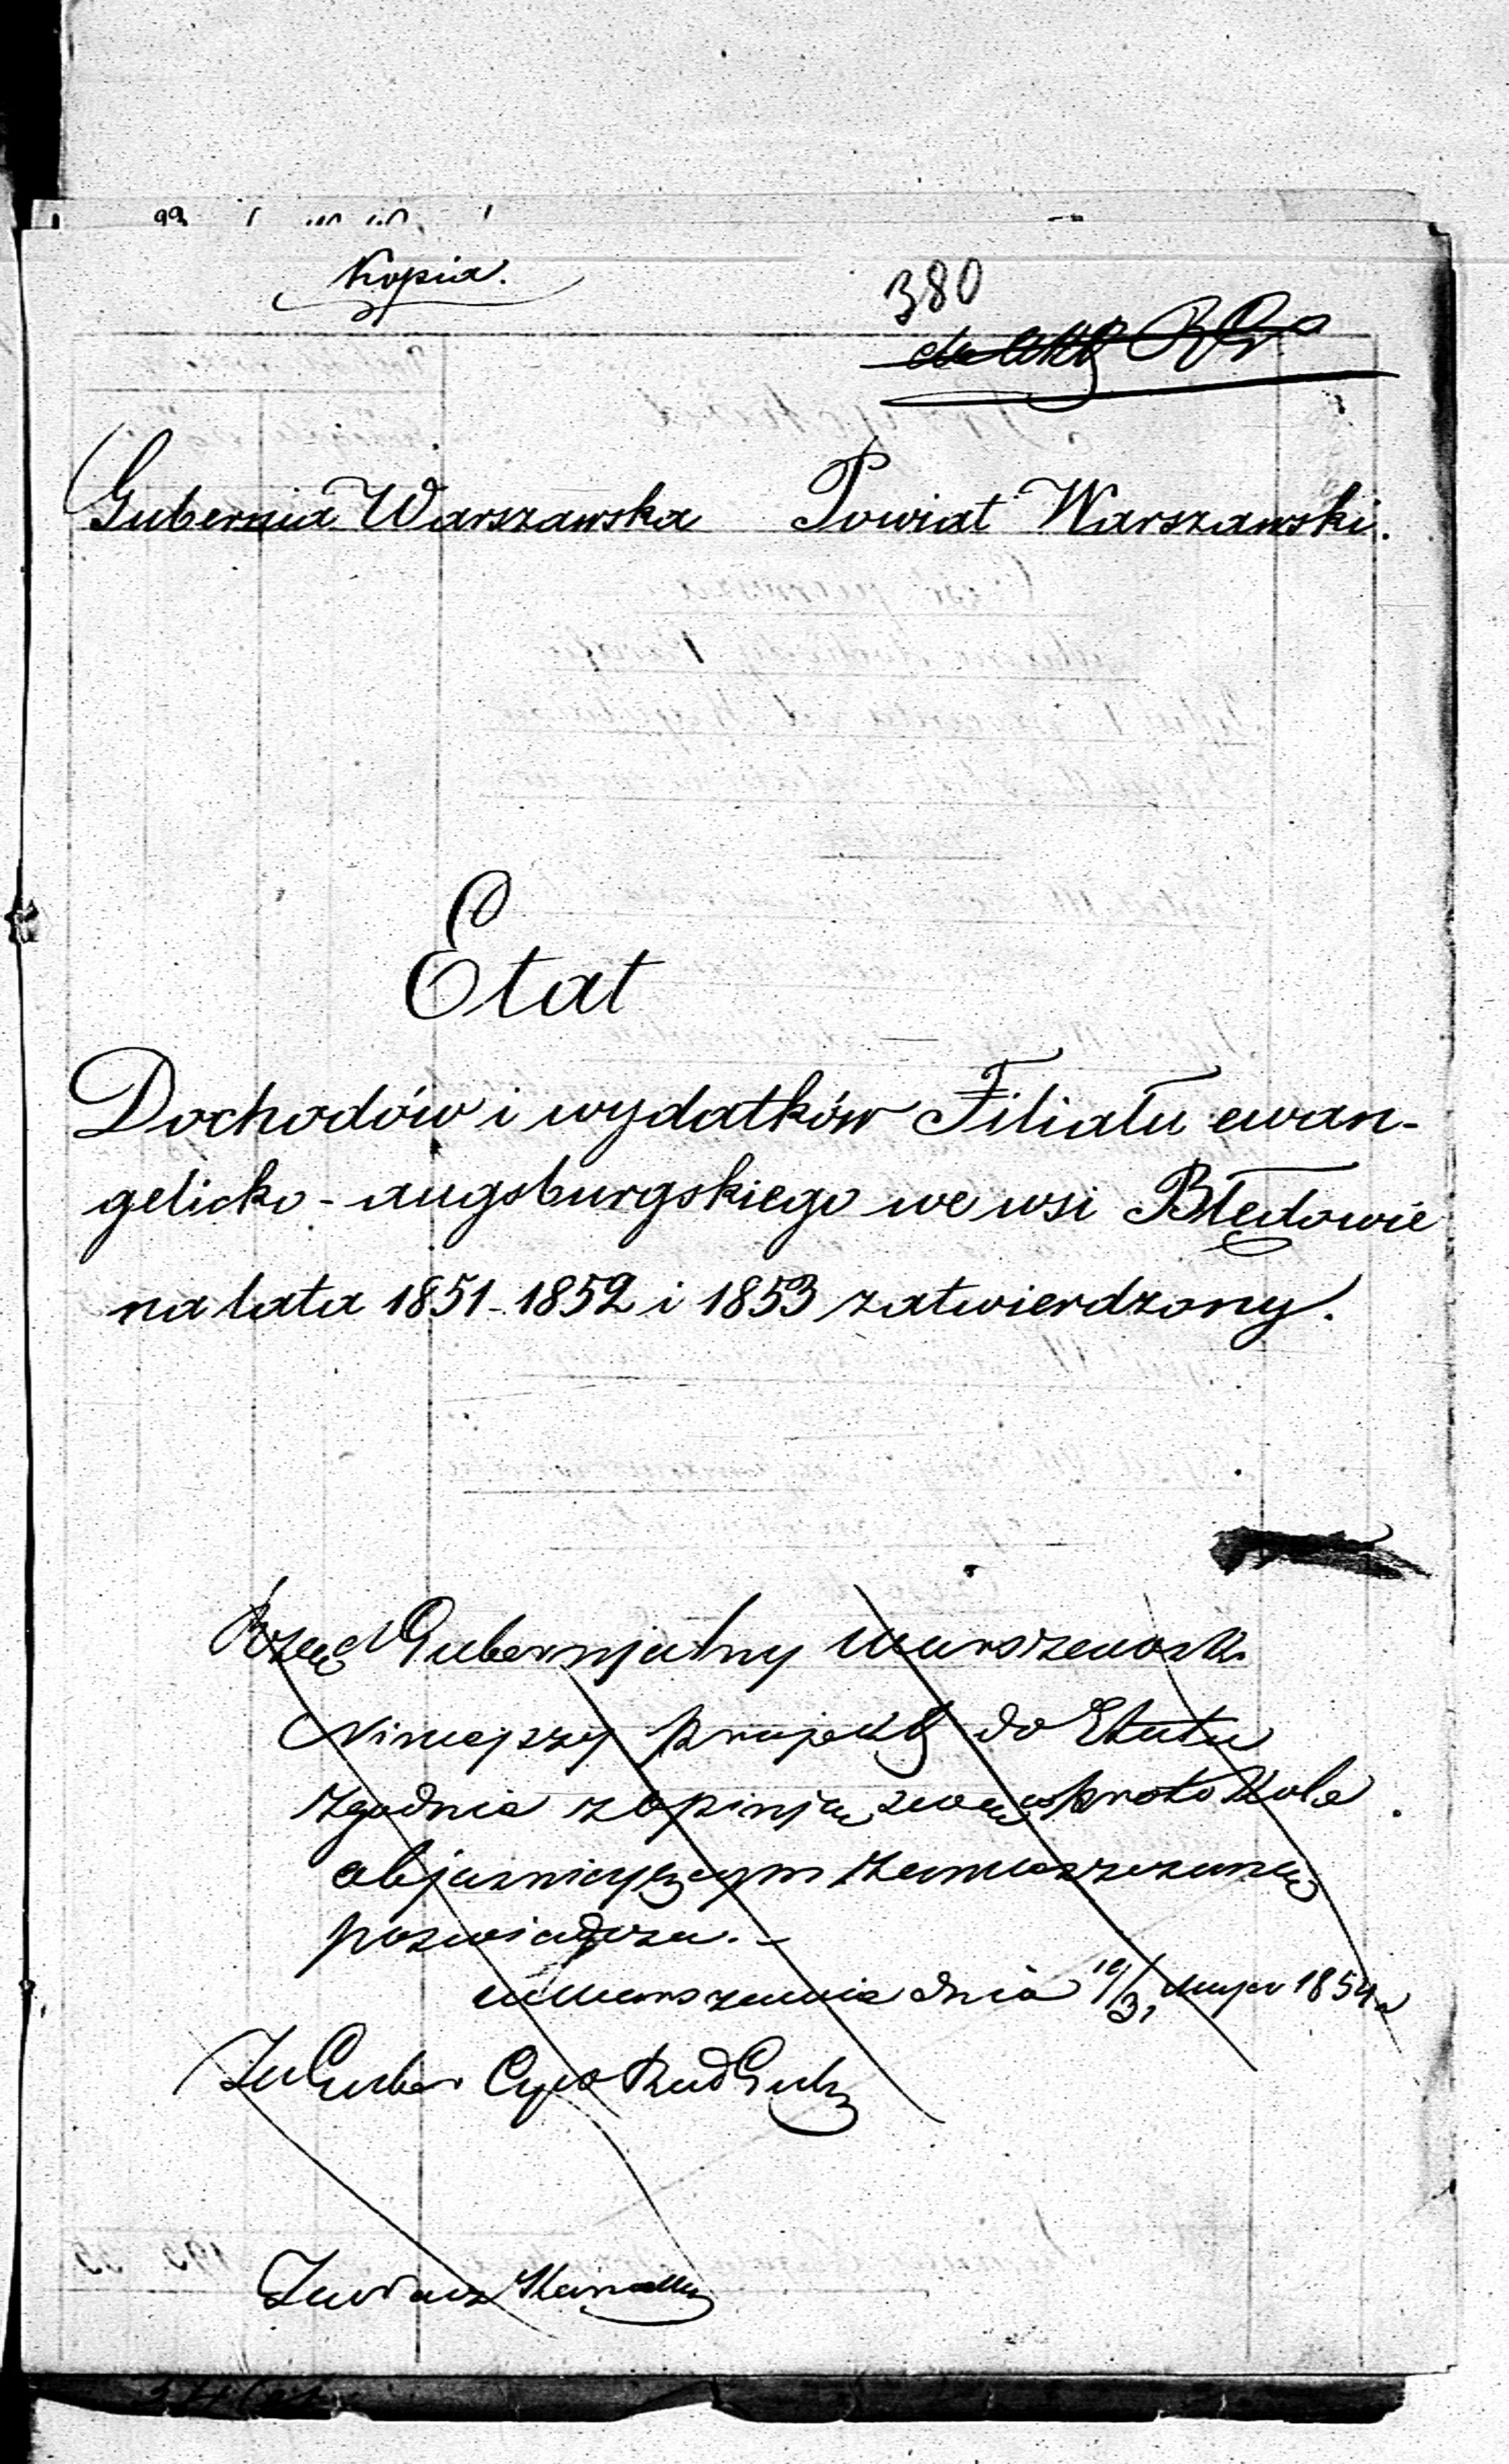 Kopia.
380
Gubernia Warszawska Powiat Warszawski.
Etat
Dochodów i wydatków Filiału ewan-
gelicko-augsburgskiego we wsi Błędowie
na lata 1851-1852 i 1853 zatwierdzony.
Rząd Gubernjalny Warszawski
Niniejszy projekt do Etatu
zgodnie z opinją swoją w protokole
objaśniającym zamieszczoną
poświadcza.-
w Warszawie dnia 19/31 Maja 1854 r